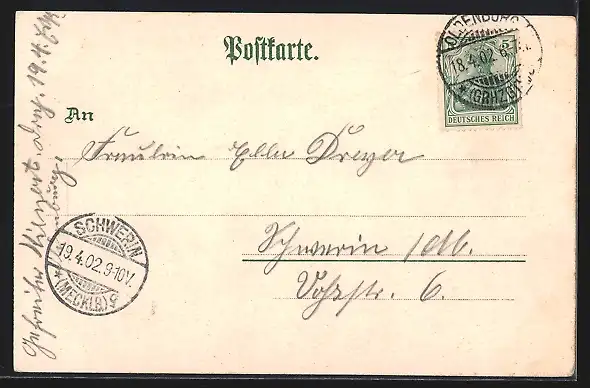 Postkarte.
OLDENBURG
18.4.02
(GRHZGT)
5
DEUTSCHES REICH
An
Fräulein Ella Dreyer
Schwerin i/M.
Voßstr. 6.
SCHWERIN
19.4.02.9-10V.
* (MECKLB) g
Gefreiter
19.4.